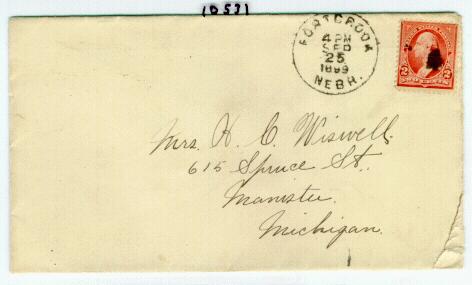 (0531
FORT CROOK
4 PM
SEP
25
1899
NEBR.
2 2
Mrs. H. C. Wiswell.
615 Spruce St.
Manistee.
Michigan.